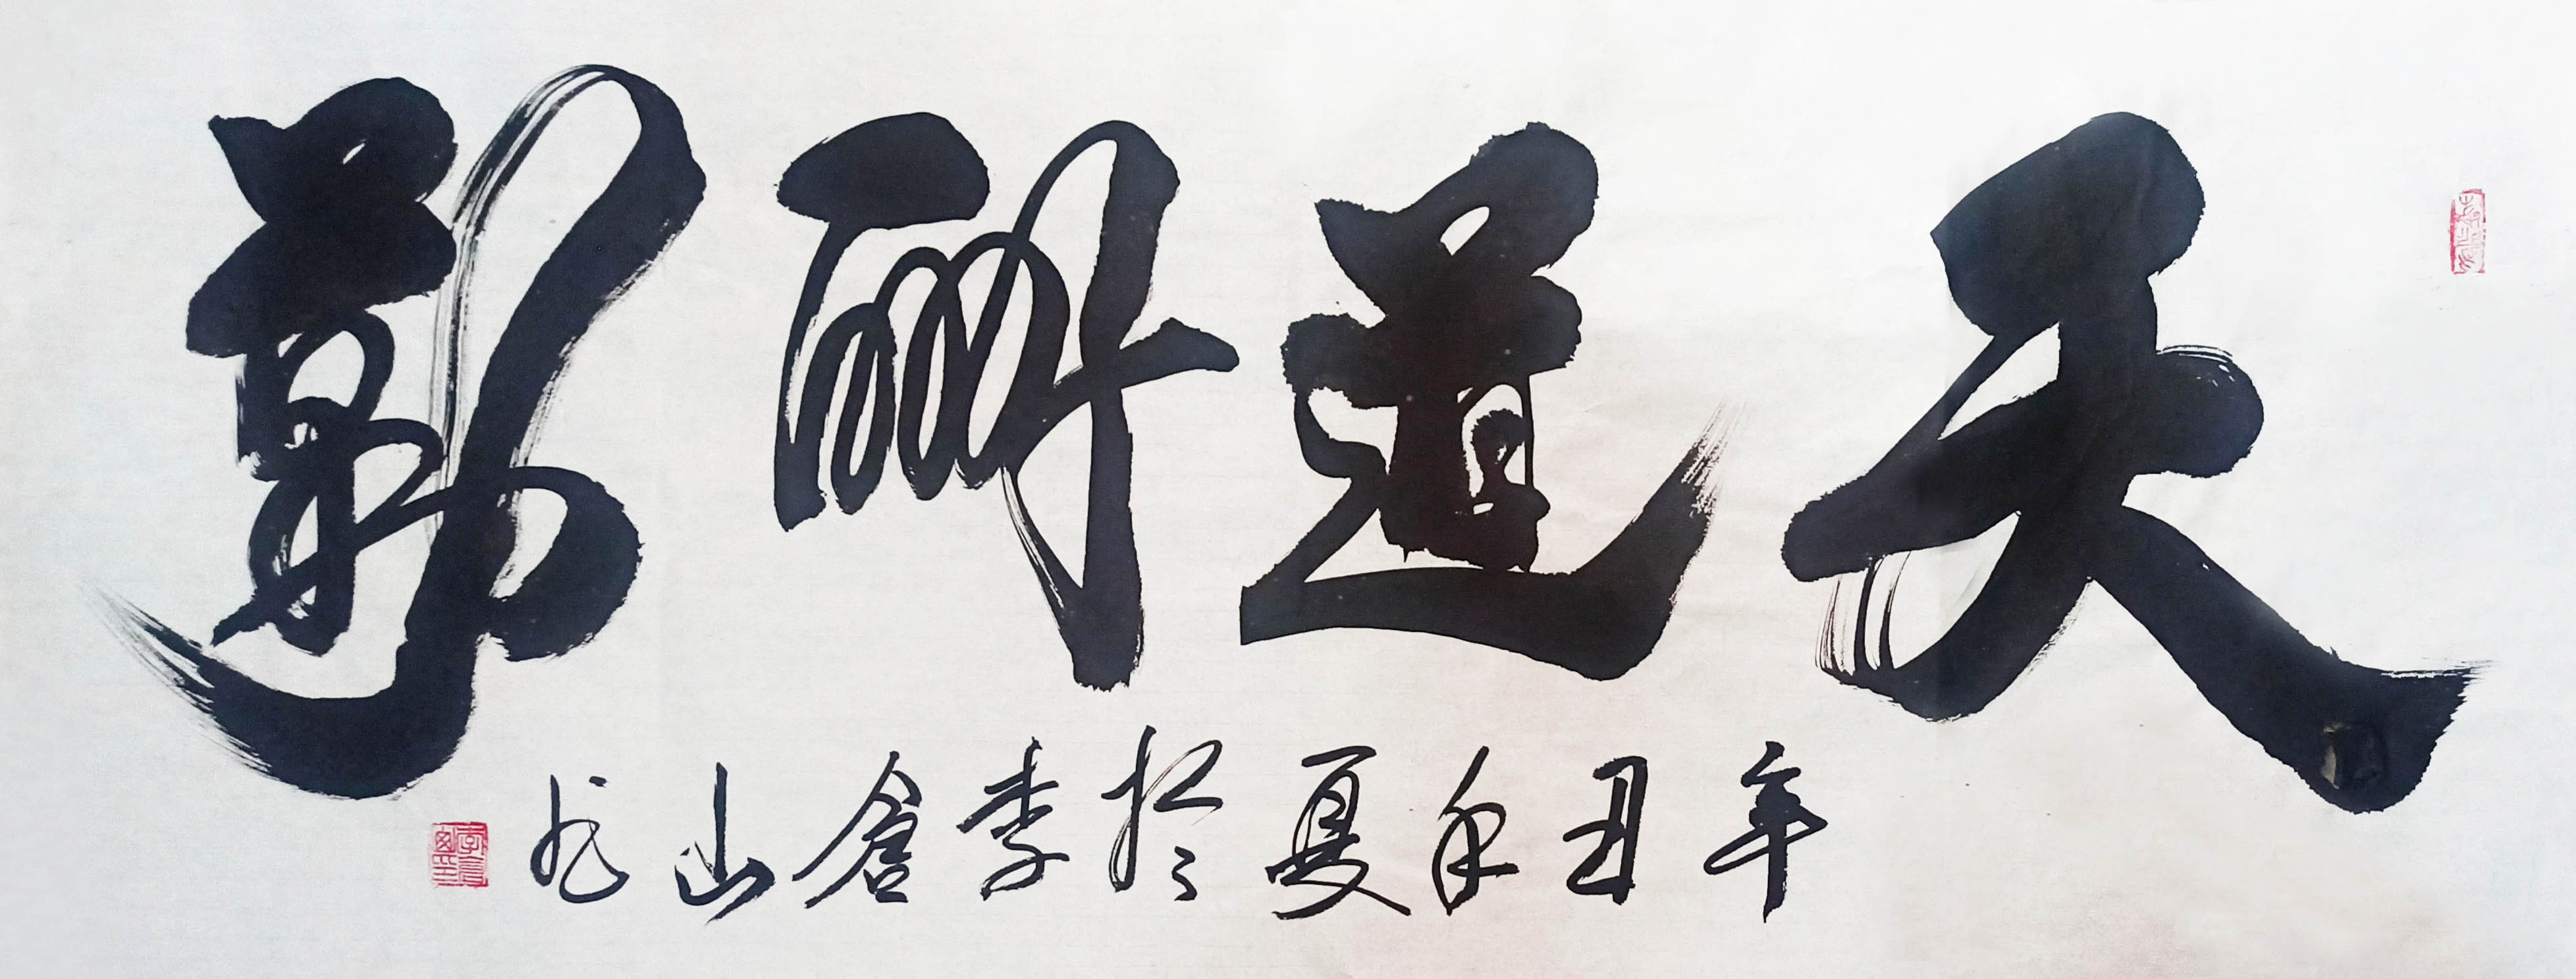 天道酬勤
辛丑年夏於李倉山